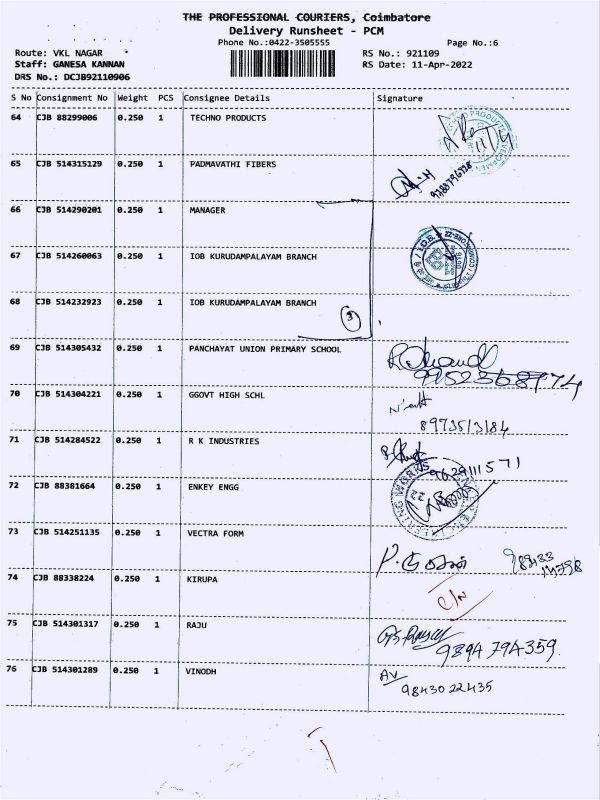 THE PROFESSIONAL COURIERS, Coimbatore
Delivery Runsheet - PCM
Phone No.:0422-3505555 Page No.:6
Route: VKL NAGAR RS No.: 921109
Staff: GANESA KANNAN RS Date: 11-Apr-2022
DRS No.: DCJB92110906
S No Consignment No Weight PCS Consignee Details Signature
64 CJB 88299006 0.250 1 TECHNO PRODUCTS
65 CJB 514315129 0.250 1 PADMAVATHI FIBERS
66 CJB 514290201 0.250 1 MANAGER
67 CJB 514260063 0.250 1 IOB KURUDAMPALAYAM BRANCH
68 CJB 514232923 0.250 1 IOB KURUDAMPALAYAM BRANCH
3
69 CJB 514305432 0.250 1 PANCHAYAT UNION PRIMARY SCHOOL
70 CJB 514304221 0.250 1 GGOVT HIGH SCHL
8973513184
71 CJB 514284522 0.250 1 R K INDUSTRIES
9629111571
72 CJB 88381664 0.250 1 ENKEY ENGG
73 CJB 514251135 0.250 1 VECTRA FORM
74 CJB 88338224 0.250 1 KIRUPA
C/N
75 CJB 514301317 0.250 1 RAJU
9394794359
76 CJB 514301289 0.250 1 VINODH
AV
9843022435